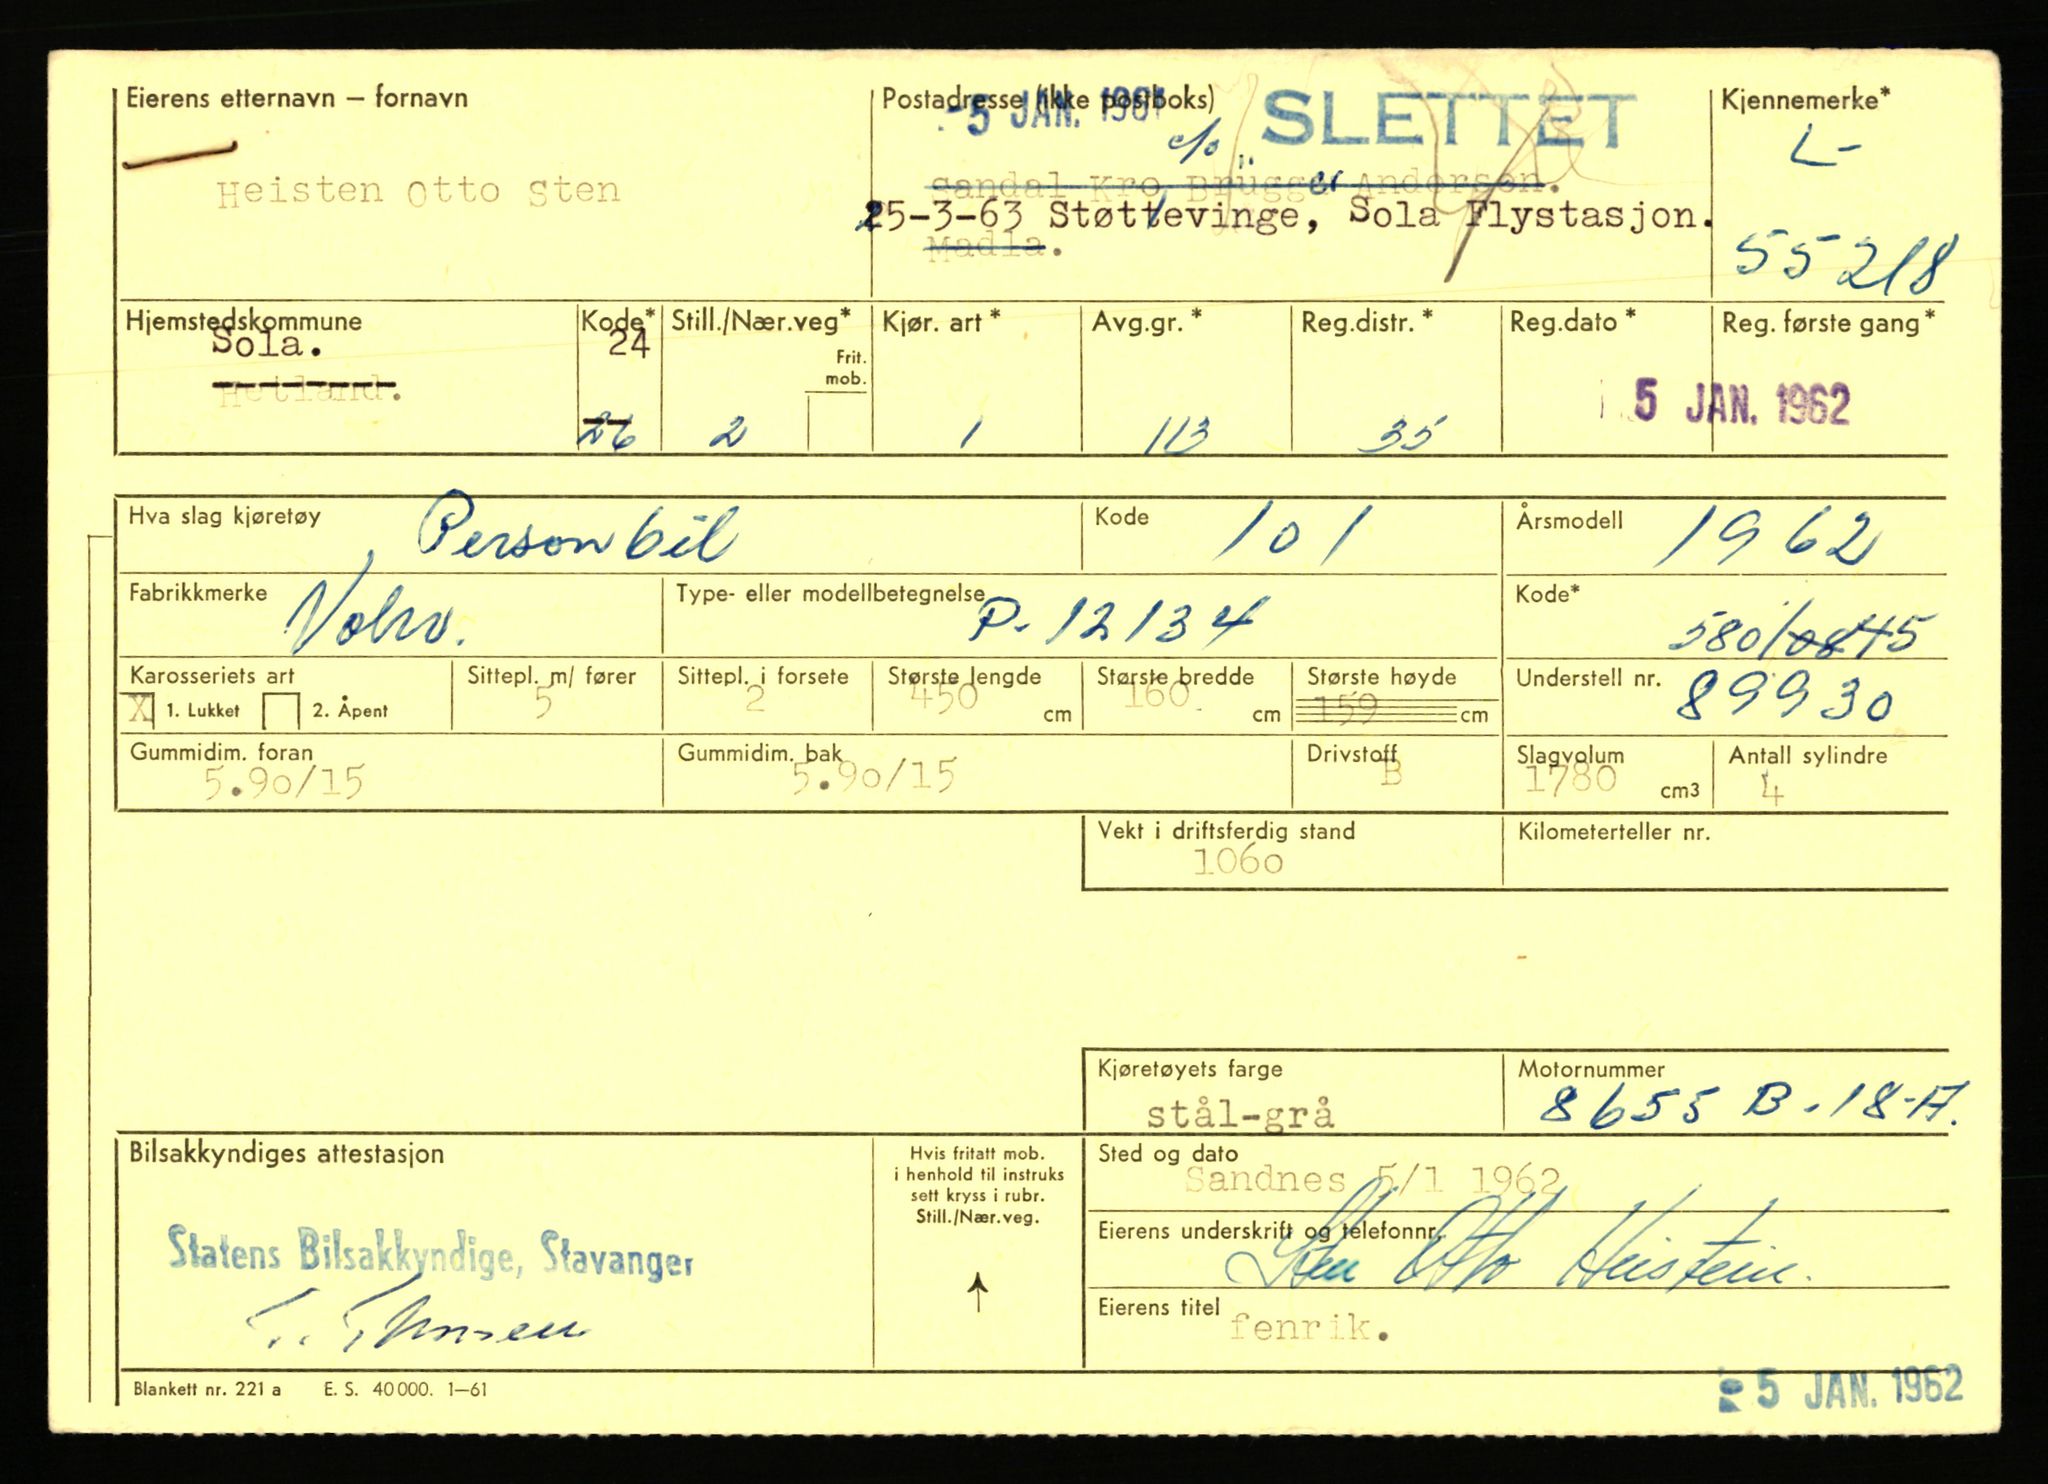 Eierens etternavn – fornavn
Heisten Otto Sten
Postadresse (ikke postboks)
-5 JAN. 1981
SLETTET
c/o
Sandal Kro Brügger Anderson.
25-3-63 Støttevinge, Sola Flystasjon.
Madla.
Kjennemerke*
L-
55218
Hjemstedskommune
Sola.
Hetland.
Kode*
24
26
Still./Nær.veg*
Frit.
mob.
2
Kjør. art *
1
Avg.gr. *
113
Reg.distr. *
35
Reg.dato *
Reg. første gang*
5 JAN. 1962
Hva slag kjøretøy
Personbil
Kode
101
Årsmodell
1962
Fabrikkmerke
Volvo.
Type- eller modellbetegnelse
P-12134
Kode*
580/0845
Karosseriets art
X 1. Lukket 2. Åpent
Sittepl. m/ fører
5
Sittepl. i forsete
2
Største lengde
450 cm
Største bredde
160 cm
Største høyde
159 cm
Understell nr.
89930
Gummidim. foran
5.90/15
Gummidim. bak
5.90/15
Drivstoff
B
Slagvolum
1780 cm3
Antall sylindre
4
Vekt i driftsferdig stand
1060
Kilometerteller nr.
Kjøretøyets farge
stål-grå
Motornummer
8655 B-18-A.
Bilsakkyndiges attestasjon
Statens Bilsakkyndige, Stavanger
Hvis fritatt mob.
i henhold til instruks
sett kryss i rubr.
Still./Nær.veg.
Sted og dato
Sandnes 5/1 1962
Eierens underskrift og telefonnr.
Sten Otto Heistein.
Eierens titel
fenrik.
Blankett nr. 221 a E. S. 40 000. 1–61
5 JAN. 1962